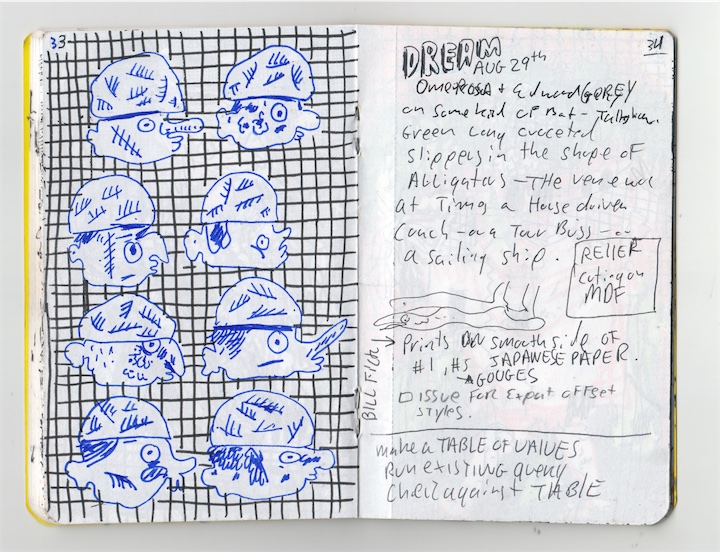 33
34
DREAM
AUG 29th
OMEROSA + EdwardGOREY
on some kind of Bat -
Green Long
slippers in the shape of
Alligators - THE venue was
at Times a Horse driven
Coach - or a Tour Buss - or
a sailing ship.
RELIEF
cutting on
MDF
Prints on smooth side of
#1, #5 JAPANESE PAPER.
GOUGES
ISSUE FOR Export offset
styles.
BILL FICK
make a TABLE OF VALUES
RUN EXISTING query
Check against TABLE